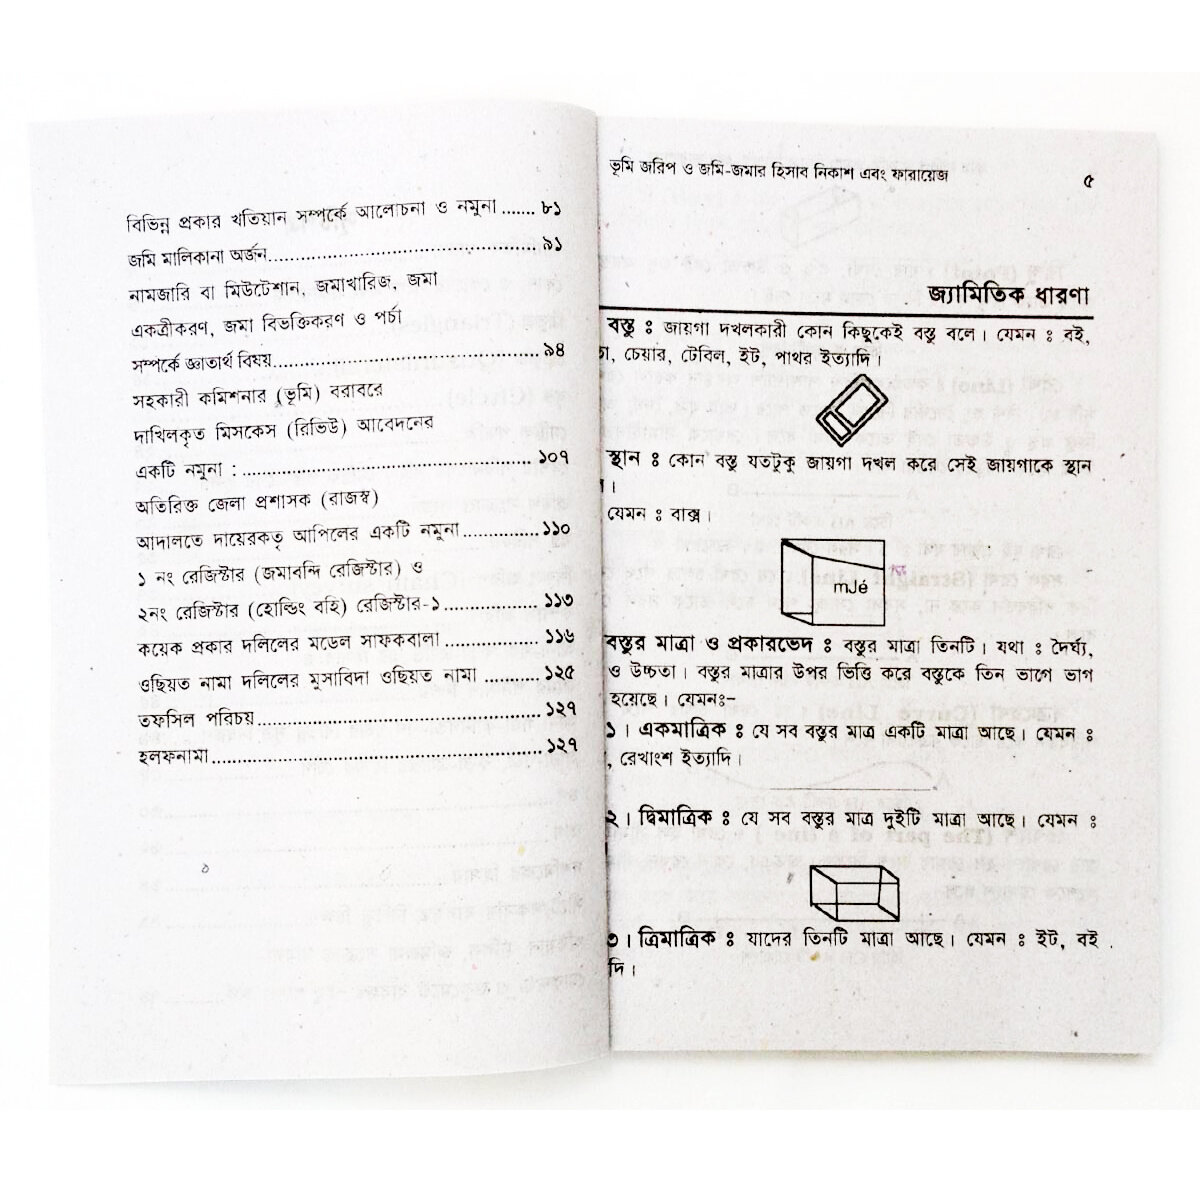 বিভিন্ন প্রকার খতিয়ান সম্পর্কে আলোচনা ও নমুনা ....... ৮১
জমি মালিকানা অর্জন.................................................. ৯১
নামজারি বা মিউটেশান, জমাখারিজ, জমা
একত্রীকরণ, জমা বিভক্তিকরণ ও পর্চা
সম্পর্কে জ্ঞাতার্থ বিষয়.................................................. ৯৪
সহকারী কমিশনার (ভূমি) বরাবরে
দাখিলকৃত মিসকেস (রিভিউ) আবেদনের
একটি নমুনা : .................................................. ১০৭
অতিরিক্ত জেলা প্রশাসক (রাজস্ব)
আদালতে দায়েরকতৃ আপিলের একটি নমুনা.............. ১১০
১ নং রেজিস্টার (জমাবন্দি রেজিস্টার) ও
২নং রেজিস্টার (হোল্ডিং বহি) রেজিস্টার-১................ ১১৩
কয়েক প্রকার দলিলের মডেল সাফকবালা ................ ১১৬
ওছিয়ত নামা দলিলের মুসাবিদা ওছিয়ত নামা ........... ১২৫
তফসিল পরিচয়.................................................. ১২৭
হলফনামা.................................................. ১২৭
ভূমি জরিপ ও জমি-জমার হিসাব নিকাশ এবং ফারায়েজ ৫
জ্যামিতিক ধারণা
বস্তু ঃ জায়গা দখলকারী কোন কিছুকেই বস্তু বলে। যেমন ঃ বই,
চেয়ার, টেবিল, ইট, পাথর ইত্যাদি।
স্থান ঃ কোন বস্তু যতটুকু জায়গা দখল করে সেই জায়গাকে স্থান
।
যেমন ঃ বাক্স।
mJé
বস্তুর মাত্রা ও প্রকারভেদ ঃ বস্তুর মাত্রা তিনটি। যথা ঃ দৈর্ঘ্য,
ও উচ্চতা। বস্তুর মাত্রার উপর ভিত্তি করে বস্তুকে তিন ভাগে ভাগ
হয়েছে। যেমনঃ-
১। একমাত্রিক ঃ যে সব বস্তুর মাত্র একটি মাত্রা আছে। যেমন ঃ
, রেখাংশ ইত্যাদি।
২। দ্বিমাত্রিক ঃ যে সব বস্তুর মাত্র দুইটি মাত্রা আছে। যেমন ঃ
৩। ত্রিমাত্রিক ঃ যাদের তিনটি মাত্রা আছে। যেমন ঃ ইট, বই
দি।